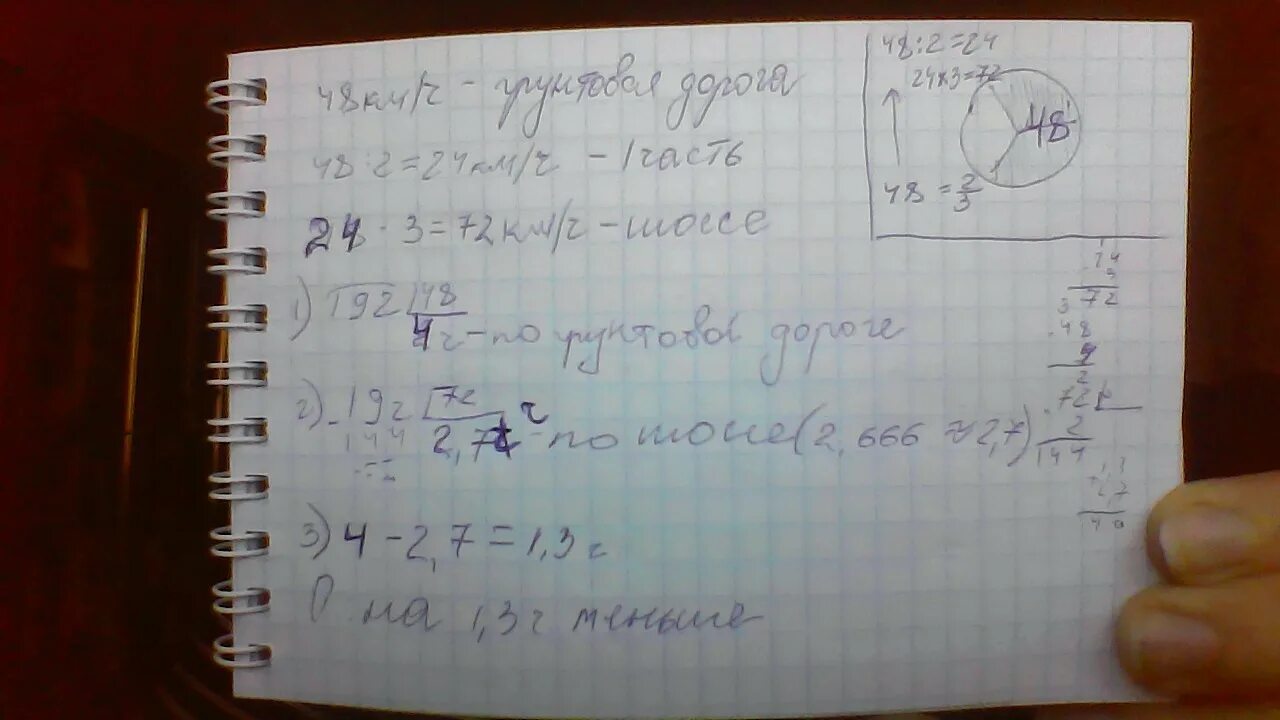 48км/ч - грунтовая дорога
48:2=24км/ч - 1часть
24 · 3=72км/ч - шоссе
1) 192 48
4ч - по грунтовой дороге
2) - 192 72
144 2,7 ч - по шоссе (2,666 ≈ 2,7)
3) 4 - 2,7 = 1,3ч
О на 1,3ч меньше
48:2=24
24×3=72
48
48 = 2/3
3
72
48
2
72
2
144
2,7